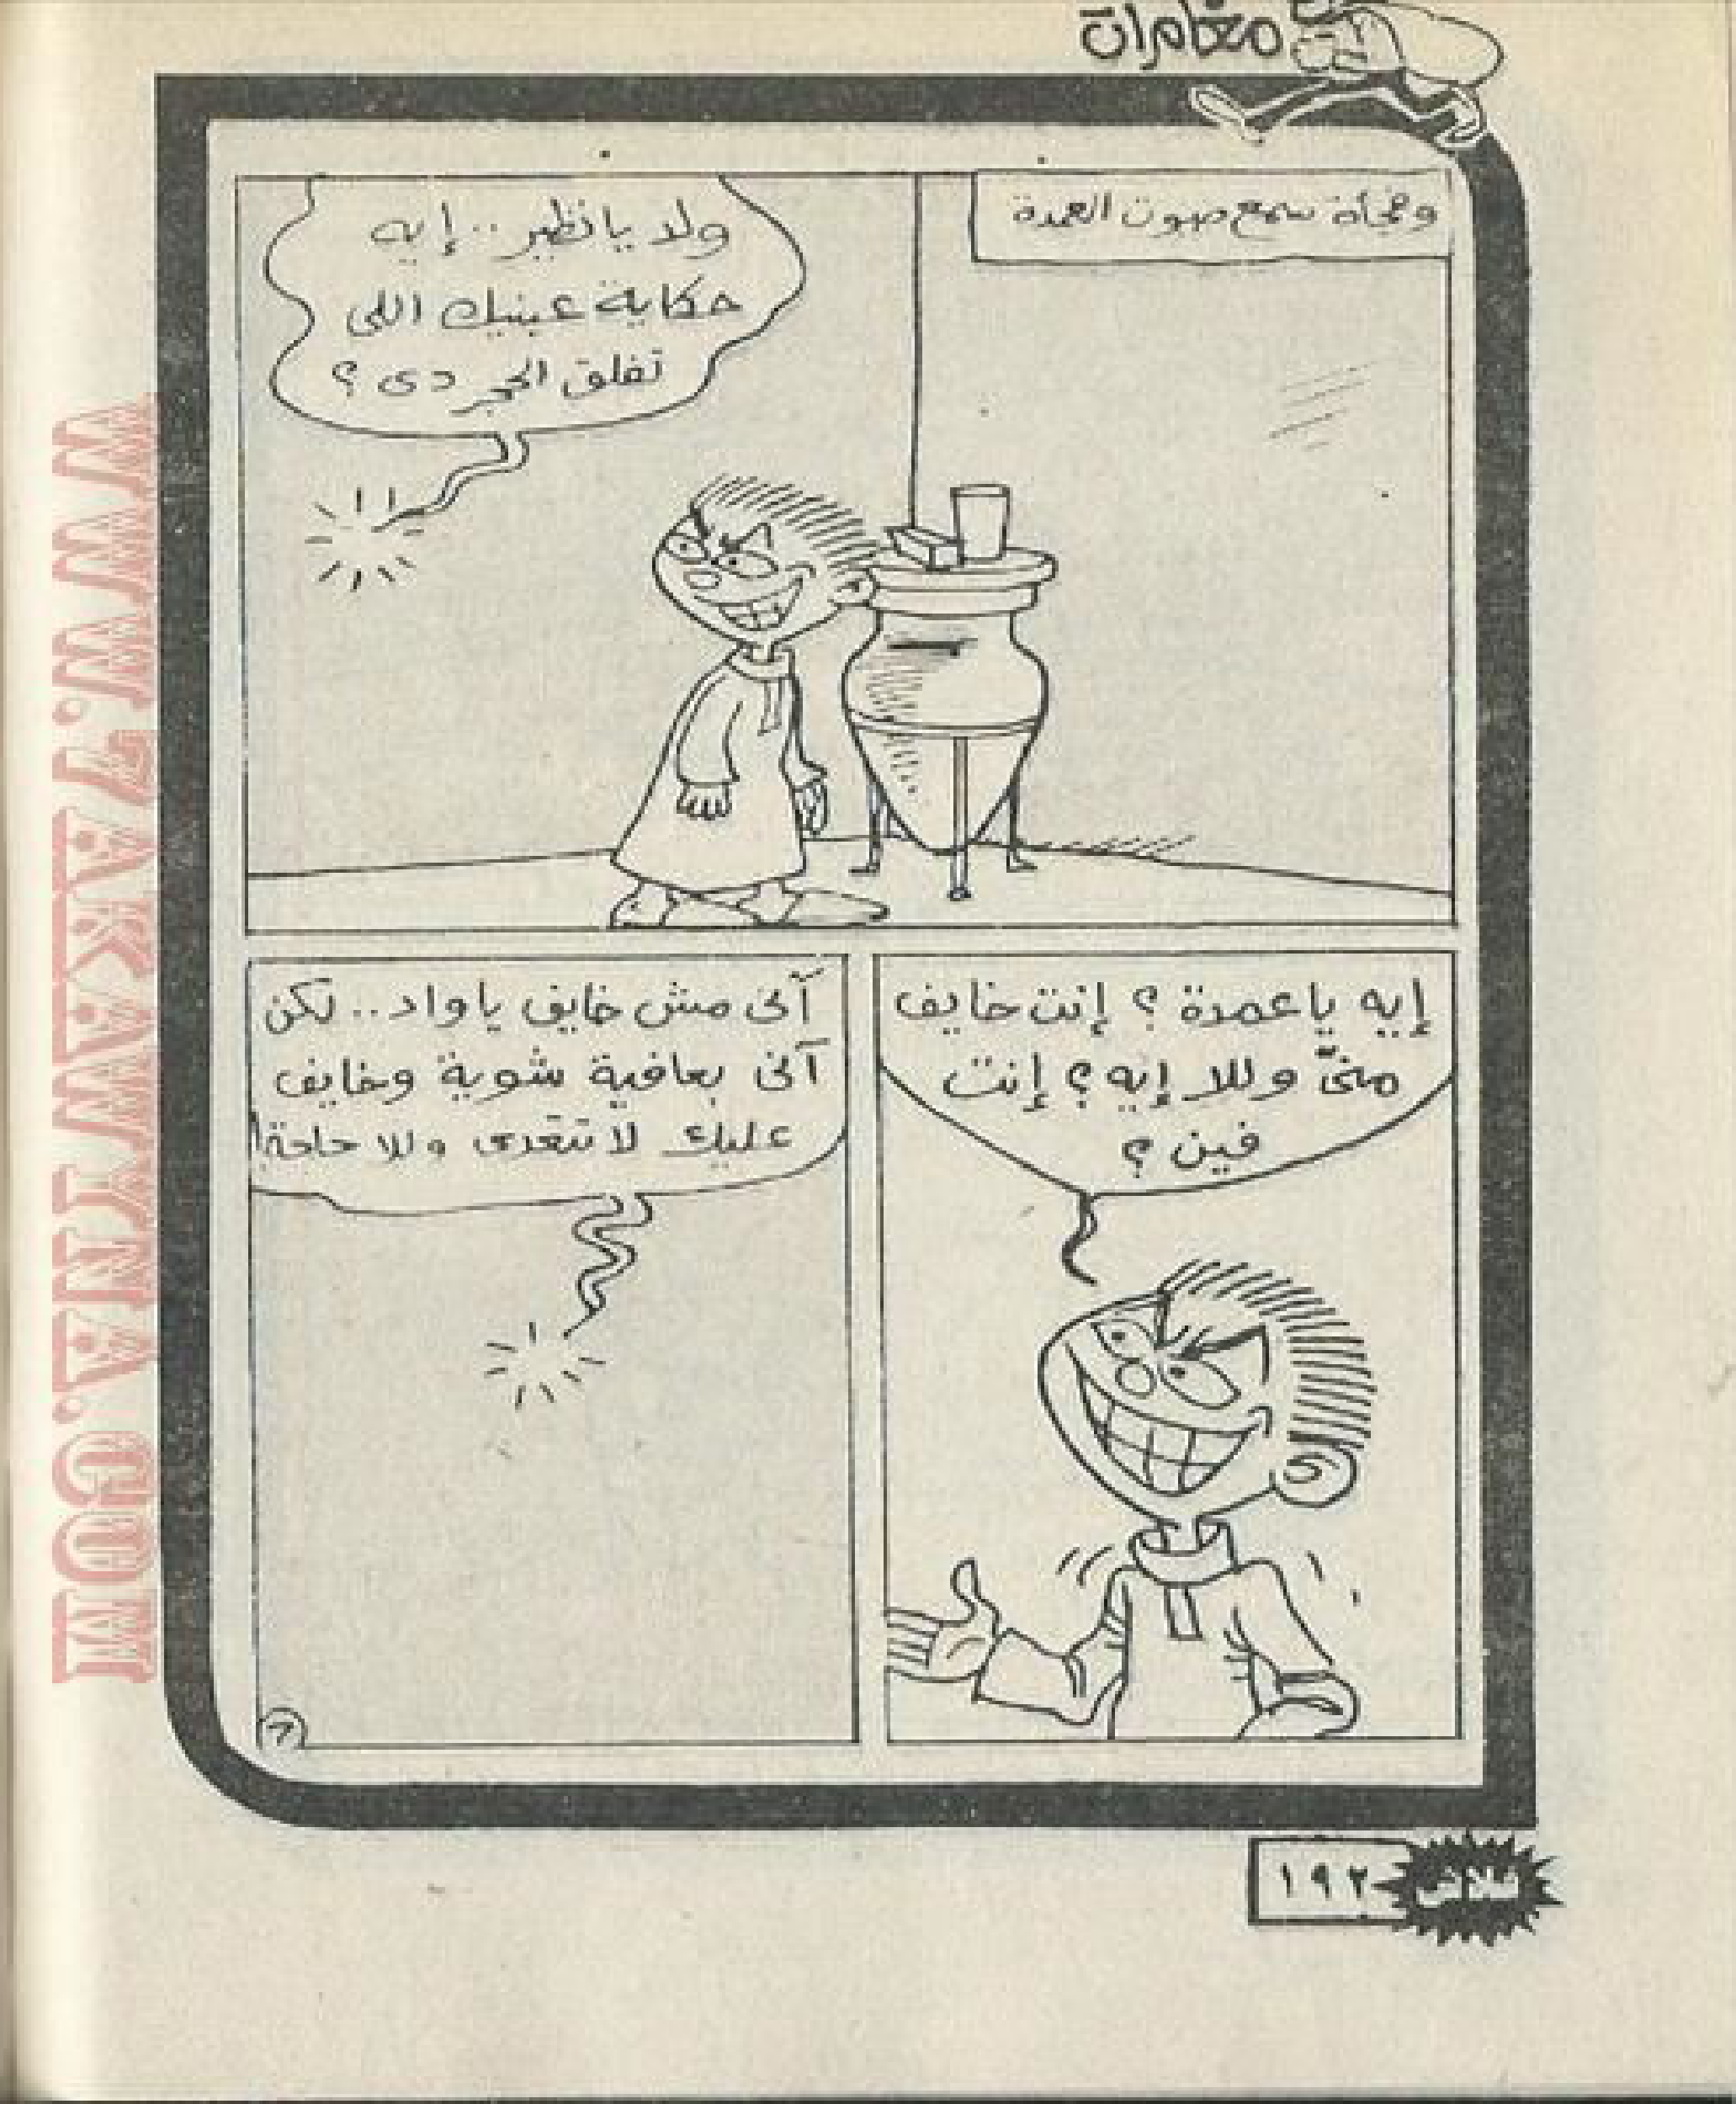 مغامرات
وفجأة سمع صوت العمدة
ولد يا نظير .. إيه
حكاية عينيك اللى
تفلق الحجر دى ؟
إيه يا عمدة ؟ إنت خايف
منىّ وللا إيه ؟ إنت
فين ؟
آنى مش خايف يا واد .. لكن
آنى بعافية شوية وخايف
عليك لا تتعدى وللا حاجة!
٦
فلاش
١٩٢
WWW.7AKAWINA.COM